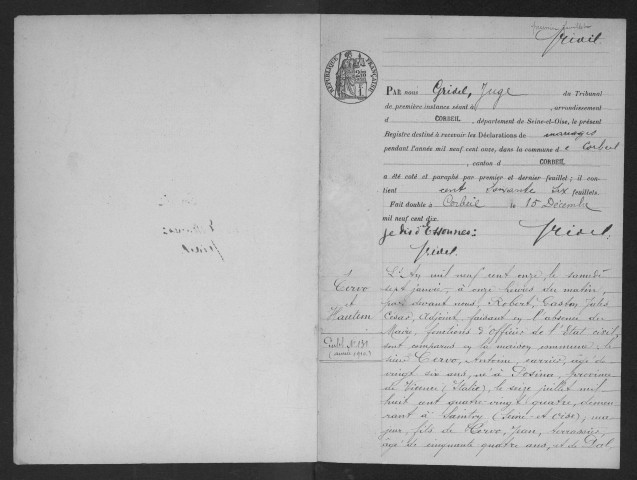 Premier feuillet
Gridel
RÉPUBLIQUE FRANÇAISE
PAR nous Gridel, Juge du Tribunal
de première instance séant à , arrondissement
d CORBEIL, département de Seine-et-Oise, le présent
Registre destiné à recevoir les Déclarations de mariages
pendant l'année mil neuf cent onze, dans la commune de Corbeil
, canton d CORBEIL
a été coté et paraphé par premier et dernier feuillet; il con-
tient cent soixante six feuillets.
Fait double à Corbeil le 15 Décembre
mil neuf cent dix.
je dis d'Essonnes:
Gridel.
Gridel
1
Cervo
et
Hautem
Publ. N° 131
(année 1910)
L'An mil neuf cent onze, le samedi
sept janvier, à onze heures du matin,
par devant nous, Robert, Gaston Jules
César, Adjoint, faisant en l'absence du
Maire, fonctions d'Officier de l'Etat civil,
sont comparus en la maison commune le
sieur Cervo, Antoine, carrier, âgé de
vingt six ans, né à Posina, province
de Vicence (Italie), le seize juillet mil
huit cent quatre vingt quatre, demeu-
rant à Saintry (Seine-et-Oise), ma-
jeur, fils de Cervo, Jean, terrassier,
âgé de cinquante quatre ans, et de Dal